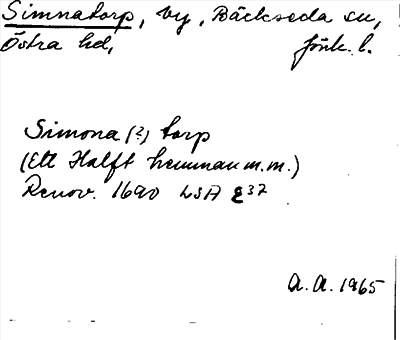 Simnatorp, by, Bäckseda sn,
Östra hd, Jönk. l.
Simona (?) torp
(Ett Halft hemman m.m.)
Renov. 1690 LSA E37
A.A. 1965